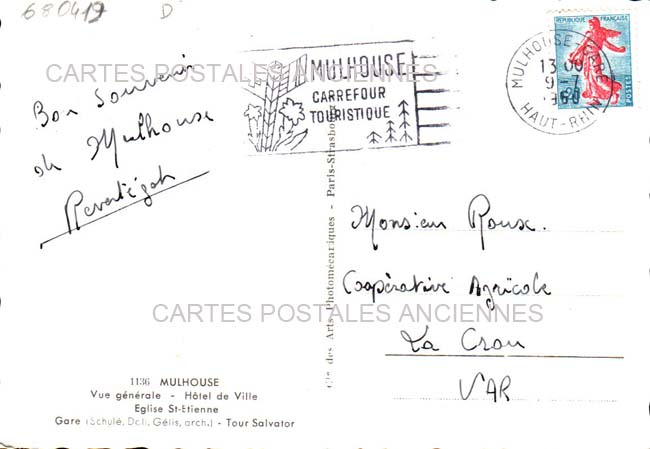 680419 D
CARTES POSTALES ANCIENNES
MULHOUSE
CARREFOUR
TOURISTIQUE
REPUBLIQUE FRANÇAISE
POSTES
MULHOUSE
13 00
9-7
1960
HAUT-RHIN
Bon souvenir
de Mulhouse
Monsieur Roux.
Coopérative Agricole
La Crau
VAR
CARTES POSTALES ANCIENNES
Cie des Arts Photomécaniques - Paris-Strasbourg
1136 MULHOUSE
Vue générale - Hôtel de Ville
Eglise St-Etienne
Gare (Schulé, Doll, Gélis, arch.) - Tour Salvator